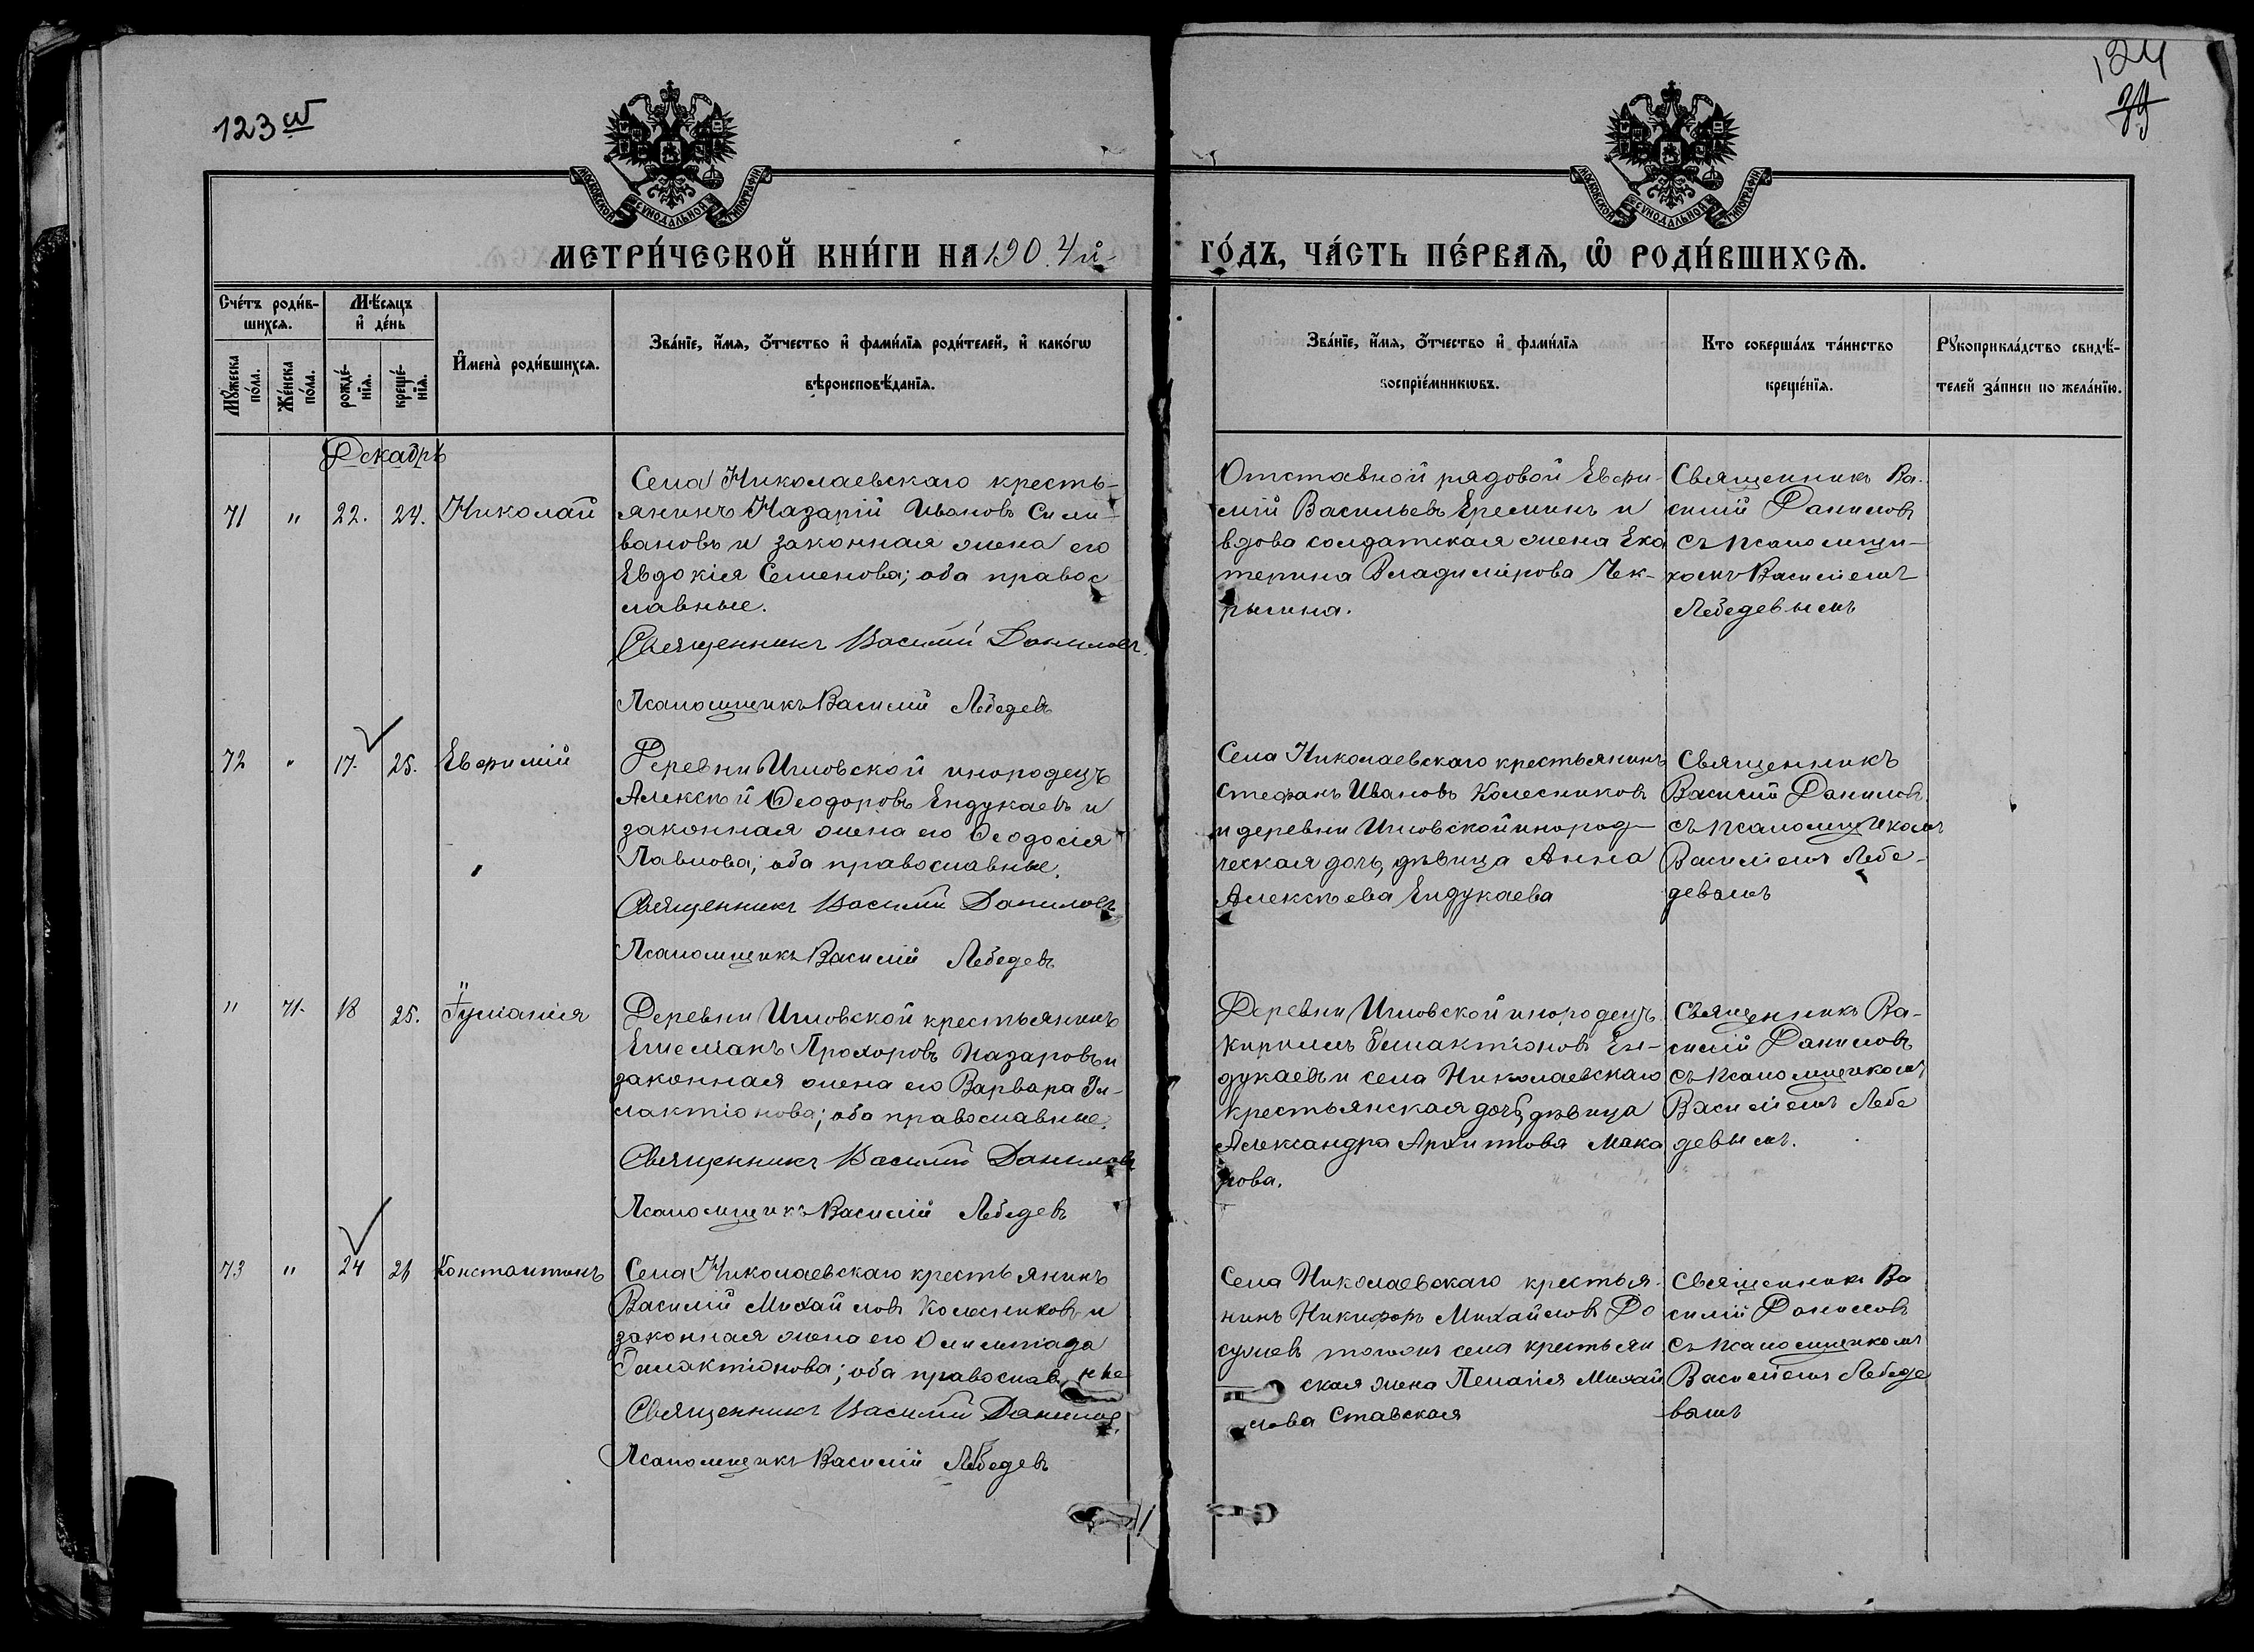 123 об
124
МОСКОВСКОЙ СѴНОДАЛЬНОЙ ТИПОГРАФІИ
МОСКОВСКОЙ СѴНОДАЛЬНОЙ ТИПОГРАФІИ
МЕТРИ́ЧЕСКОЙ КНИ́ГИ НА 1904й
ГО́ДЪ, ЧА́СТЬ ПЕ́РВАѦ, Ѡ҆ РОДИ́ВШИХСѦ.
Сче́тъ роди́в-
шихсѧ.
Мѣ́сѧцъ
и҆ де́нь
Мꙋ́жеска
по́ла.
Же́нска
по́ла.
рожде́-
нїѧ.
креще́-
нїѧ.
И҆мена̀ роди́вшихсѧ.
Зва́нїе, и҆́мѧ, ѻ҆́тчество и҆ фами́лїѧ роди́телей, и҆ како́гѡ
вѣроисповѣ́данїѧ.
Зва́нїе, и҆́мѧ, ѻ҆́тчество и҆ фами́лїѧ
воспрїе́мникѡвъ.
Кто соверша́лъ та́инство
креще́нїѧ.
Рꙋкоприкла́дство свидѣ́-
телей за́писи по жела́нїю.
Декабрь
71 " 22. 24. Николай
Села Николаевскаго кресть-
янинъ Назарій Ивановъ Сели-
вановъ и законная жена его
Евдокія Семенова; оба правос
лавные.
Священникъ Василій Даниловъ.
Псаломщикъ Василій Лебедевъ
Отставной рядовой Евфи-
мій Васильевъ Ереминъ и
вдова солдатская жена Ека
терина Владимірова Чек-
рыгина.
Священникъ Ва-
силій Даниловъ
съ псаломщи-
комъ Василіемъ
Лебедевымъ
72 " 17. 25. Евфимій
Деревни Ишовской инородецъ
Алексѣй Ѳеодоровъ Ендукаевъ и
законная жена его Ѳеодосія
Павлова; оба православные.
Священникъ Василій Даниловъ
Псаломщикъ Василій Лебедевъ
Села Николаевскаго крестьянинъ
Стефанъ Ивановъ Колесниковъ
и деревни Ишовской инород-
ческая дочь, дѣвица Анна
Алексѣева Ендукаева
Священникъ
Василій Даниловъ
съ псаломщикомъ
Василіемъ Лебе-
девымъ
" 71. 18 25. Іуліанія
Деревни Ишовской крестьянинъ
Емеліанъ Прохоровъ Назаровъ и
законная жена его Варвара Га-
лактіонова; оба православные.
Священникъ Василій Даниловъ
Псаломщикъ Василій Лебедевъ
Деревни Ишовской инородецъ
Кириллъ Галактіоновъ Ен-
дукаевъ и села Николаевскаго
крестьянская дочь, дѣвица
Александра Архипова Мака
рова.
Священникъ Ва-
силій Даниловъ
съ псаломщикомъ
Василіемъ Лебе
девымъ.
73 " 24 26 Константинъ
Села Николаевскаго крестьянинъ
Василій Михайловъ Колесниковъ и
законная жена его Олимпіада
Галактіонова; оба православные
Священникъ Василій Даниловъ.
Псаломщикъ Василій Лебедевъ
Села Николаевскаго крестья-
нинъ Никифоръ Михайловъ До
того же села крестьян
ская жена Пелагія Михай
лова Ставская
Священникъ Ва
силій Даниловъ
съ псаломщикомъ
Василіемъ Лебеде
вымъ